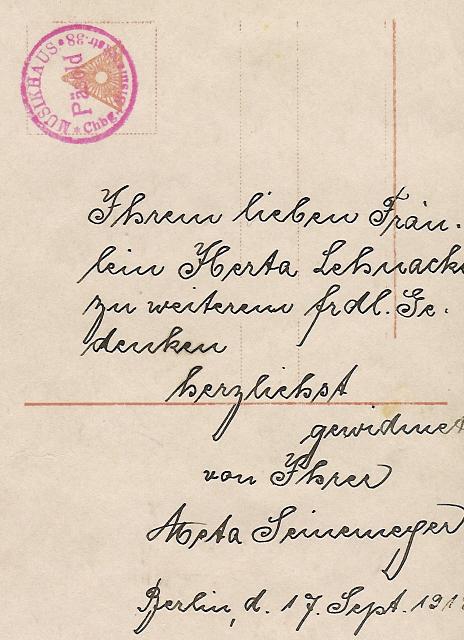 MUSIKHAUS
Päsold
Chbg.
38
Ihrem lieben Fräu-
lein Herta Lehnacke
zu weiterem frdl. Ge-
denken
herzlichst
gewidmet
von Ihrer
Meta Seinemeyer
Berlin, d. 17. Sept.